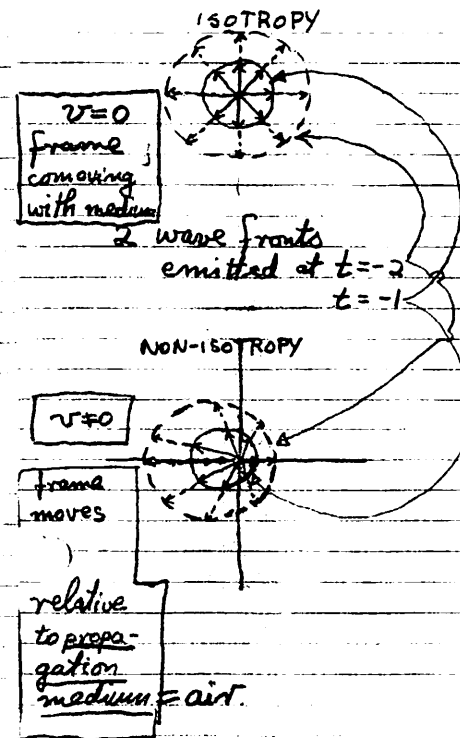 ISOTROPY
r.
v=0
frame
comoving
with medium
2 wave fronts
emitted at t=-2
t=-1
NON-ISOTROPY
v≠0
frame
moves
relative
to propa-
gation
medium = air.